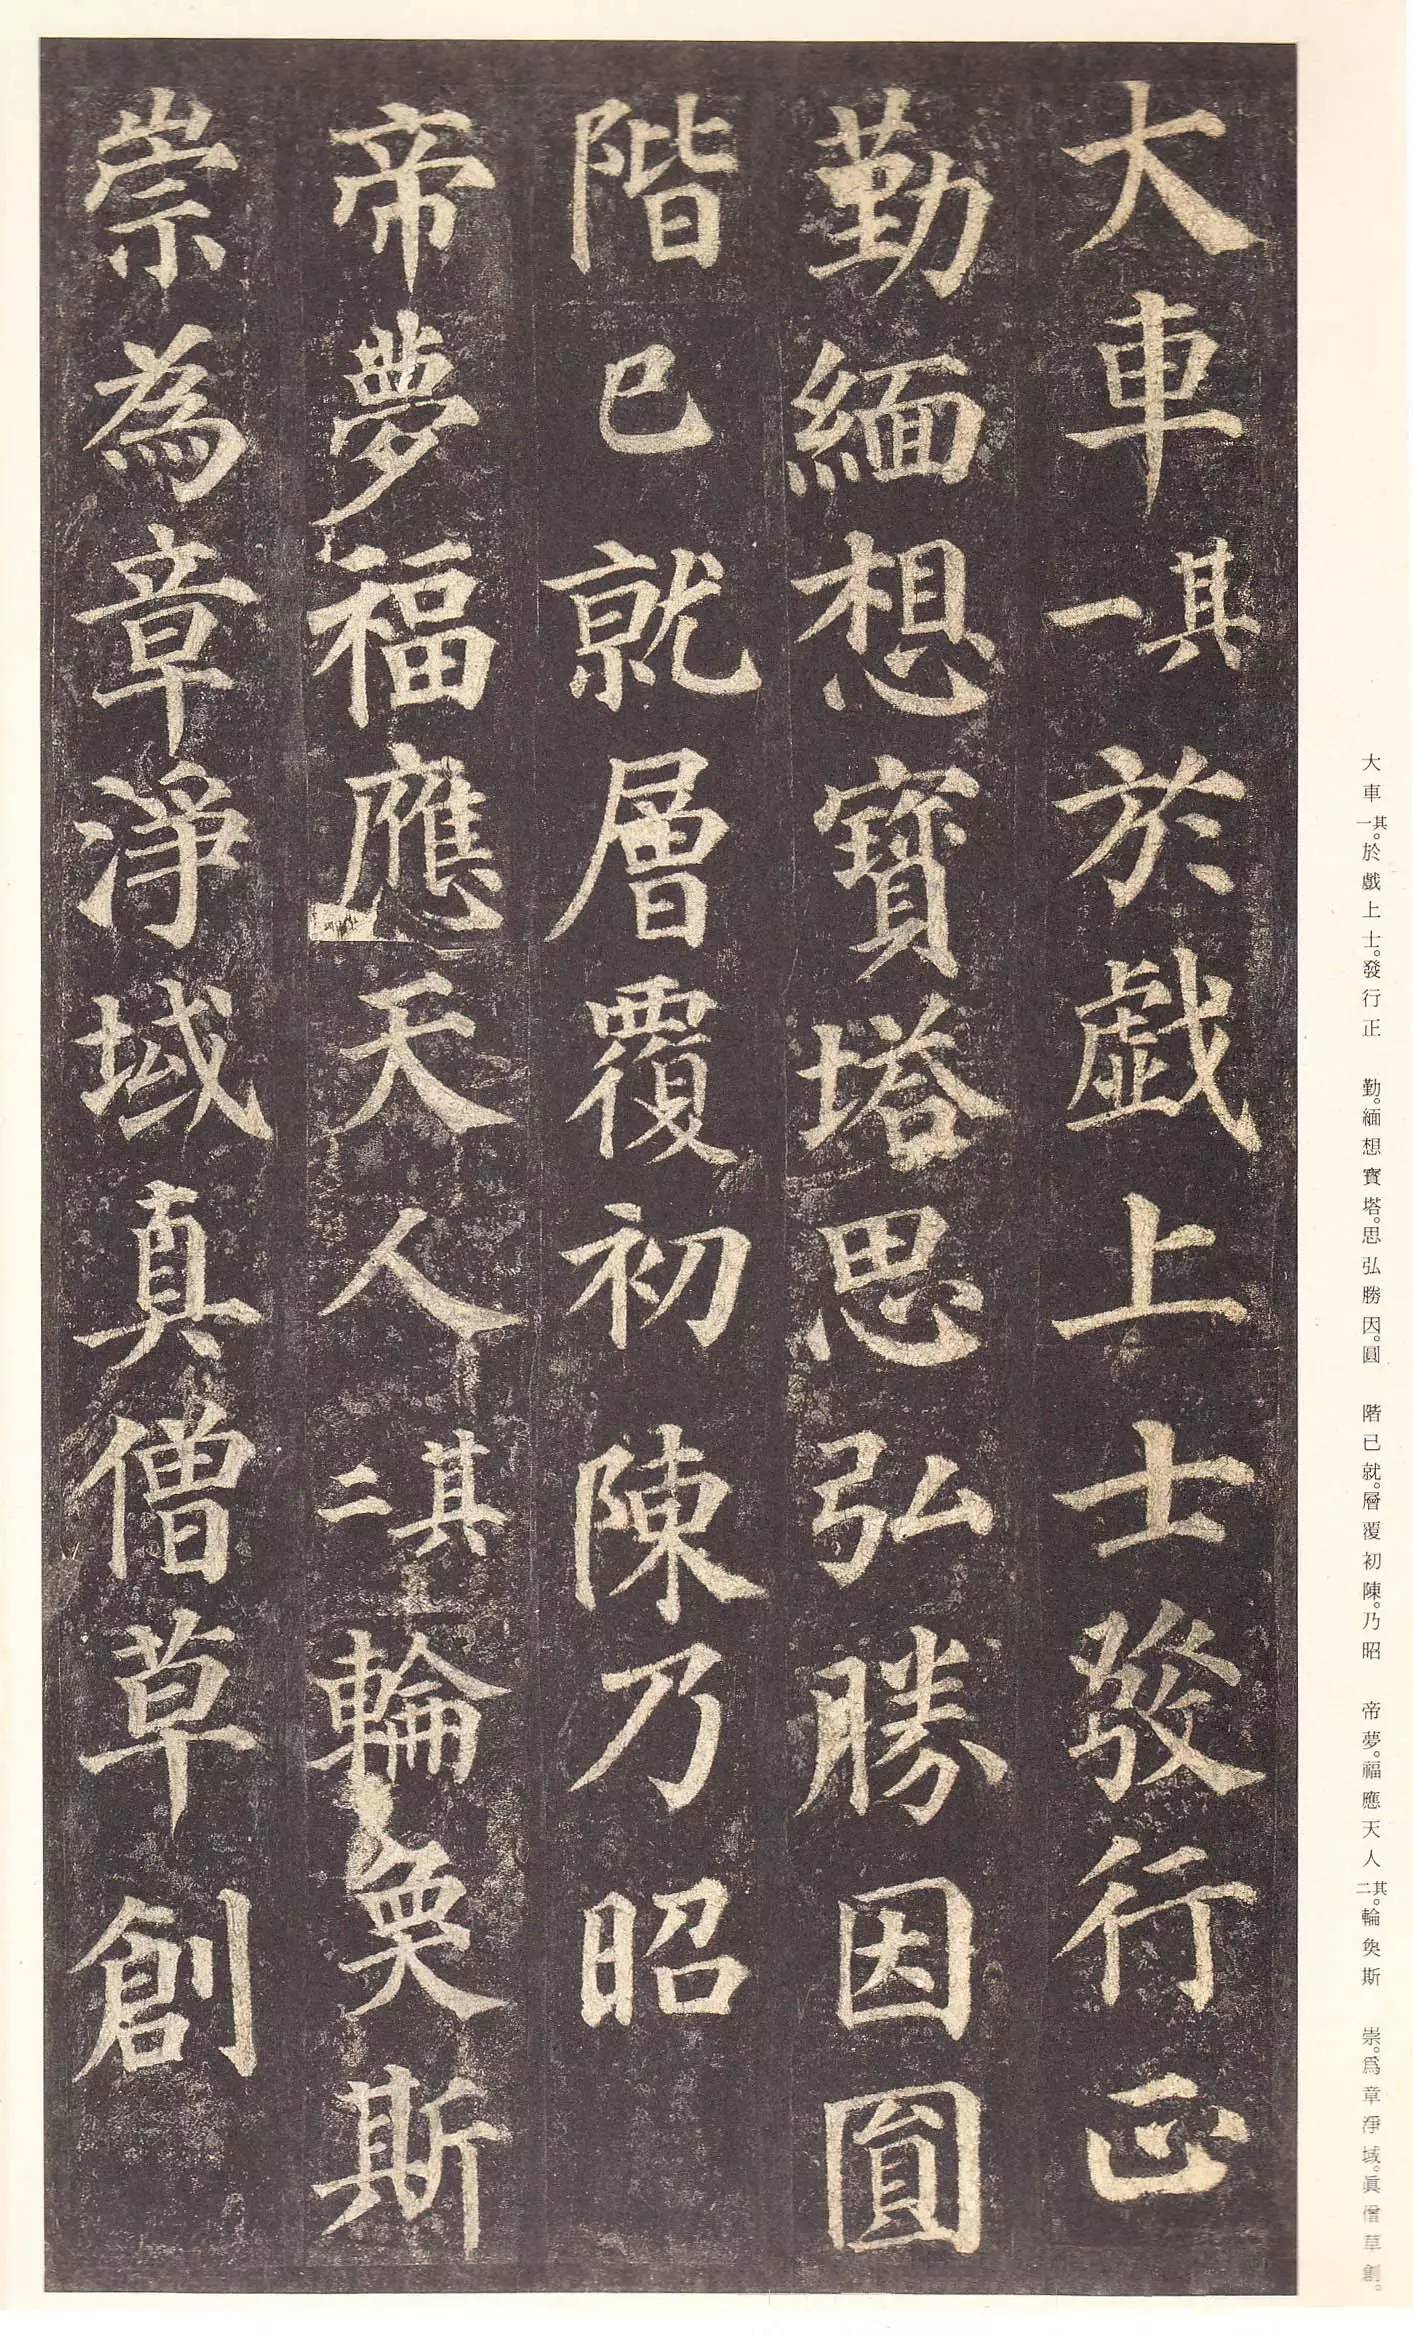 大車其一於戯上士發行正
勤緬想寶塔思弘勝因圓
階已就層覆初陳乃昭
帝夢福應天人其二輪奐斯
崇為章淨域真僧草創
大車其一。於戲上士。發行正　勤。緬想寶塔。思弘勝因。圓　階已就。層覆初陳。乃昭　帝夢。福應天人其二。輪奐斯　崇。爲章淨域。眞僧草創。